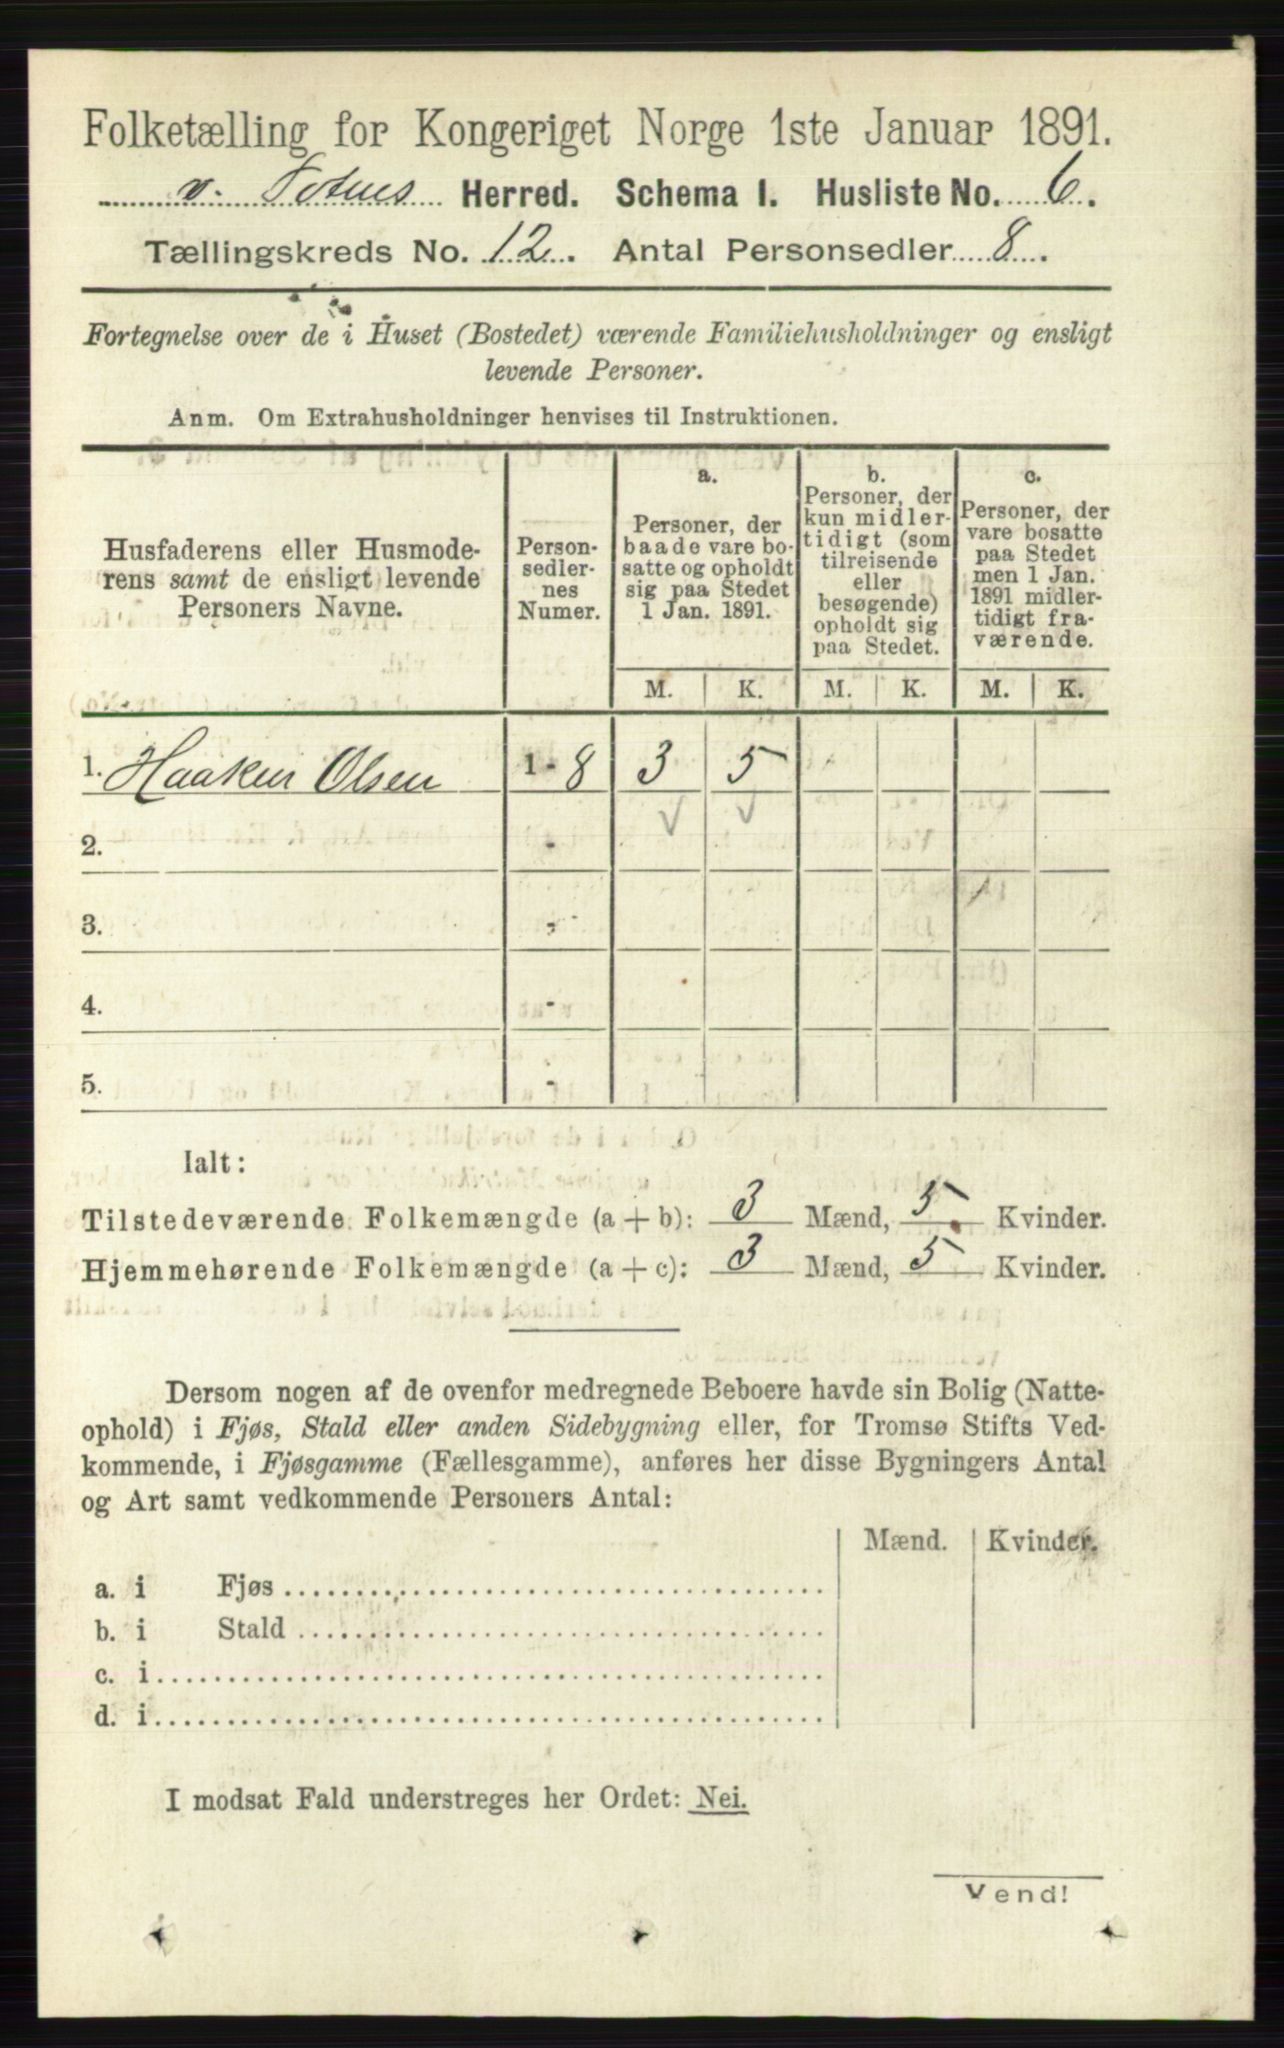 Folketælling for Kongeriget Norge 1ste Januar 1891.
v. Totens Herred. Schema I. Husliste No. 6.
Tællingskreds No. 12. Antal Personsedler 8.
Fortegnelse over de i Huset (Bostedet) værende Familiehusholdninger og ensligt
levende Personer.
Anm. Om Extrahusholdninger henvises til Instruktionen.
Husfaderens eller Husmode-
rens samt de ensligt levende
Personers Navne.
Person-
sedler-
nes
Numer.
a.
Personer, der
baade vare bo-
satte og opholdt
sig paa Stedet
1 Jan. 1891.
b.
Personer, der
kun midler-
tidigt (som
tilreisende
eller
besøgende)
opholdt sig
paa Stedet.
c.
Personer, der
vare bosatte
paa Stedet
men 1 Jan.
1891 midler-
tidigt fra-
værende.
M. K. M. K. M. K.
1. Haaken Olsen 1 - 8 3 5
2. -
3. -
4. -
5. -
Ialt:
Tilstedeværende Folkemængde (a + b): 3 Mænd, 5 Kvinder.
Hjemmehørende Folkemængde (a + c): 3 Mænd, 5 Kvinder.
Dersom nogen af de ovenfor medregnede Beboere havde sin Bolig (Natte-
ophold) i Fjøs, Stald eller anden Sidebygning eller, for Tromsø Stifts Ved-
kommende, i Fjøsgamme (Fællesgamme), anføres her disse Bygningers Antal
og Art samt vedkommende Personers Antal:
Mænd. Kvinder.
a. i Fjøs
b. i Stald
c. i
d. i
I modsat Fald understreges her Ordet: Nei.
Vend!